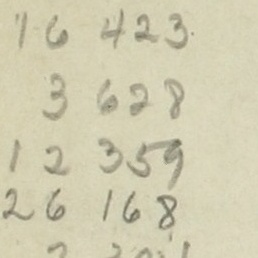 16 423
3 628
12 359
26 168